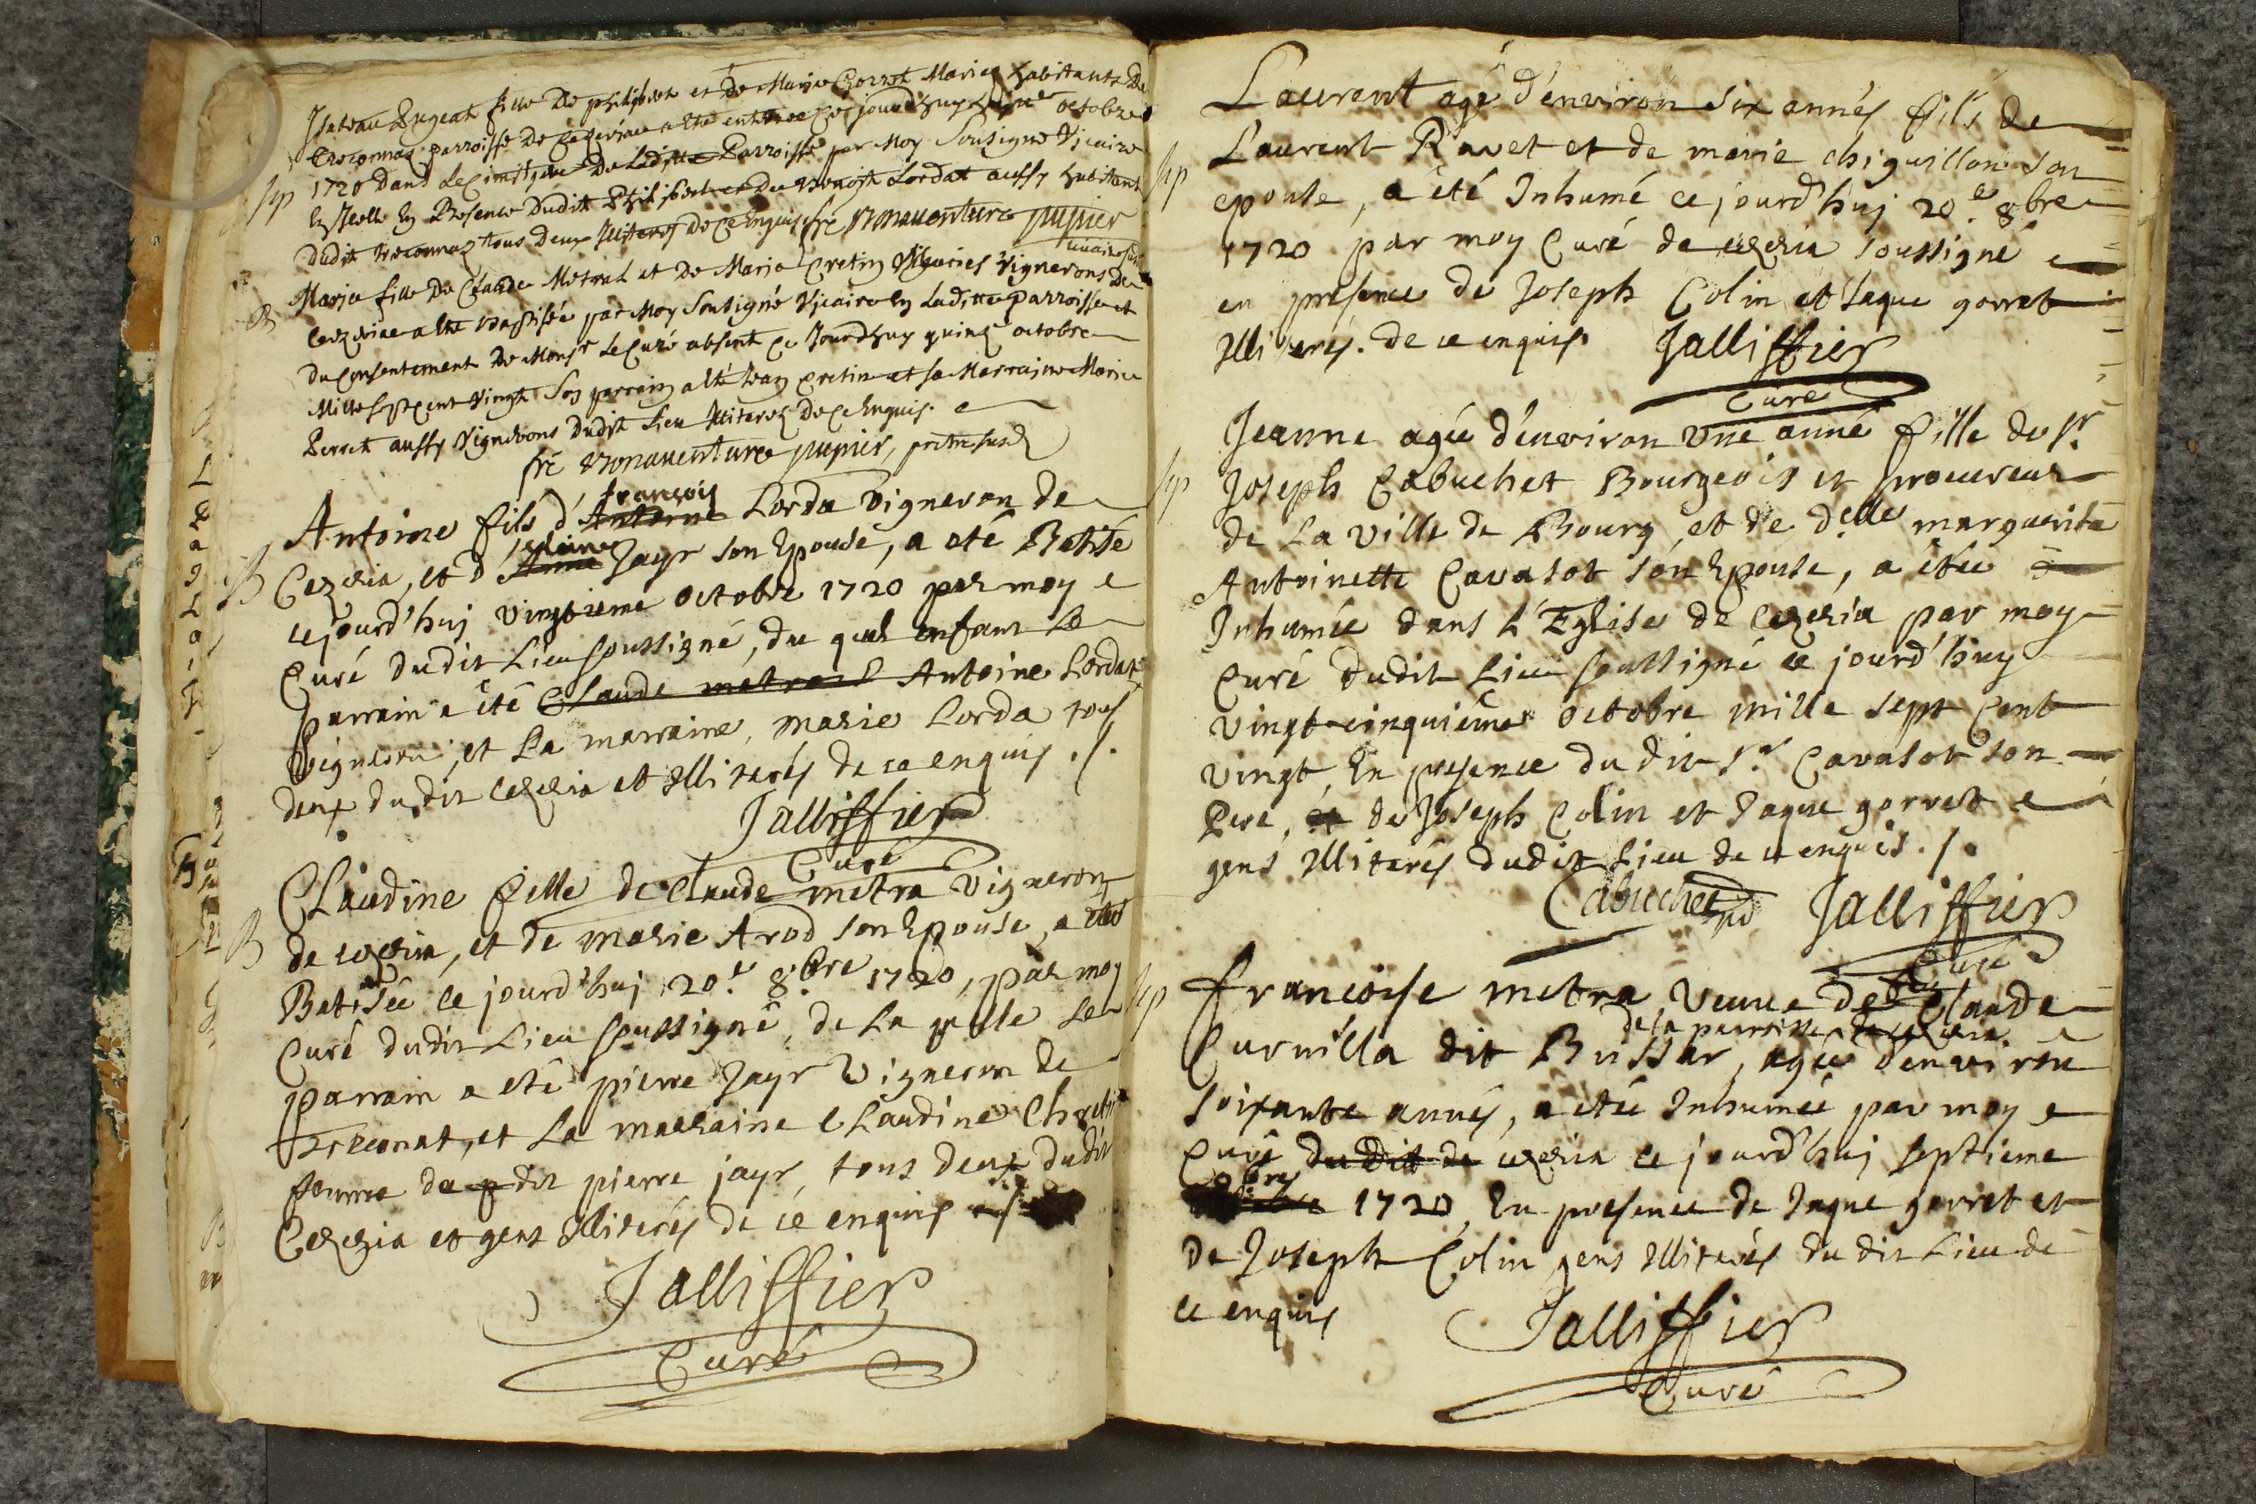 fille De philibert et De Marie Mariez habitants De
parroisse De a été enterrée Ce jourdhuy octobre
1720 dans Le Cimetiere De Laditte Parroisse par Moy Sousigné Vicaire
En Icelle En Presence Dudit Philibert et De Benoist Lordat aussy habitant
Dudit tous Deux Illiterez De Ce Enquis fre Bonaventure pupier
vicaire
Marie fille De Claude Métral et De Marie Cretin Mariés Vignerons De
Ceyzeriac a été Baptisée par Moy Sousigné Vicaire En Laditte parroisse et
Du Consentement De Monsr Le Curé absent Ce Jourdhuy quinze octobre
Mille sept cent Vingt Son parrain a été Jean Cretin et sa Marraine Marie
Perret aussy Vignerons Dudit Lieu Illiterez De Ce Enquis.
fre Bonaventure pupier, prêtre
françois
Antoine fils d'Antoine Lorda Vigneron de
Ceyzeria, et d'Anne Jayr son Epouse, a eté Batisé
cejourd'huj vingtieme octobre 1720 par moy
Curé dudit Lieu soussigné, du quel enfant Le
parrain a été Claude metral Antoine Lordat
Vigneron, et La marraine, marie Lorda tous
deux dudit ceyzeria et illiterés de ce enquis ./.
Jalliffier
Curé
Claudine fille de claude metra Vigneron
de ceyzeria, et de marie Arod son Epouse, a eté
Batisée ce jourd'huj 20.e 8.bre 1720, par moy
Curé dudit Lieu soussigné, de La quelle Le
parrain a eté pierre Jayr Vigneron de
Treconat, et La marraine Claudine Chretin
femme du dit pierre jayr, tous deux dudit
Ceyzeria et gens illiterés de ce enquis
Jalliffier
Curé
Laurent agé d'environ six annés fils de
Laurent Ravet et de marie chiquillon son
epouse, a été Inhumé ce jourd'huj 20.e 8bre
1720 par moy Curé de ceyzeria soussigné
en presence de Joseph Colin et Jaque gorret
Illiterés. de ce enquis Jalliffier
Curé
Jeanne agée d'environ une année fille de sr.
Joseph Cabuchet Bourgeois et procureur
de La ville de Bourg, et de delle marguerite
Antoinette Cavasot son Epouse, a étée
Inhumée dans L'Eglise de ceyzeria par moy
Curé dudit Lieu soussigné ce jourd'huy
vingt-cinquième octobre mille sept Cent
vingt, En presence du dit sr. Cavasot son
Pere, et de Joseph Colin et Jaque gorret
gens illiterés dudit Lieu de ce enquis ./.
Cabuchet Jalliffier
Curé
francoise metra veuve de feu Claude
de la parroisse de ceyzeria
Curnilla dit Bussar, agée d'environ
soixante annés, a étée Inhumée par moy
Curé du dit de ceyzeria ce jourd'huj septieme
1720, En presence de Jaque gorret et
de Joseph Colin gens illiterés du dit Lieu de
ce enquis Jalliffier
Curé